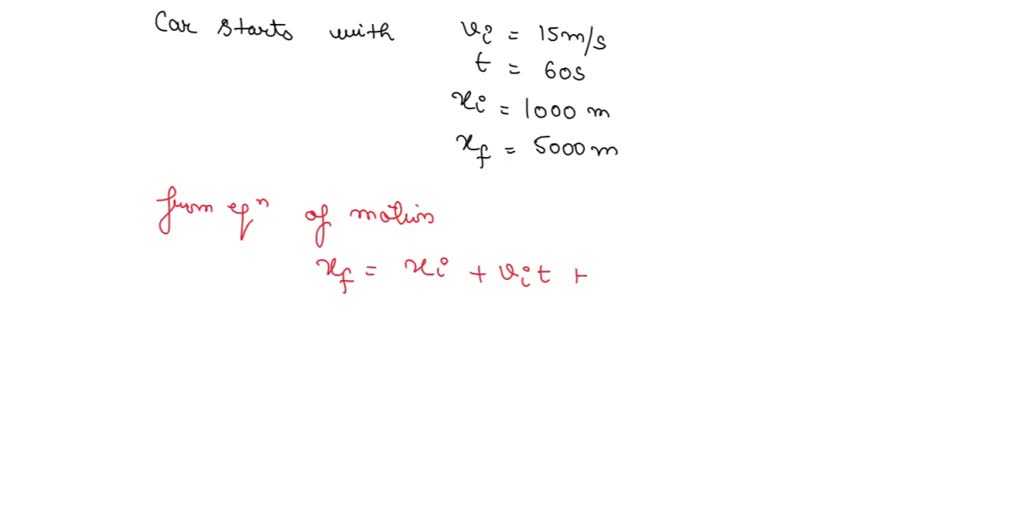 Car starts with vi = 15m/s
t = 60s
xi = 1000 m
xf = 5000m
from eqn of motion
xf = xi + vit +